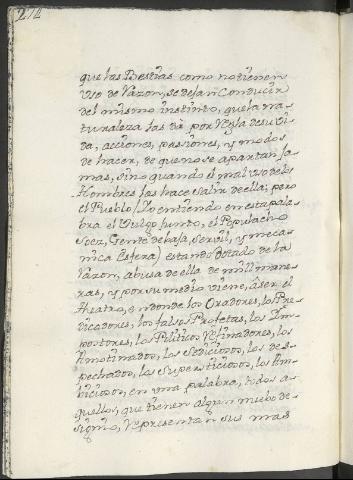 272
que las Bestias como no tienen
uso de Razon, se dejan Conducir
del mismo instinto, que la na-
turaleza las dà por Regla de su Vi-
da, acciones, pasiones, y modos
de hacer, de que no se apartan ja-
mas, sino quando el mal uso de los
Hombres las hace Salir de ella; pero
el Pueblo (Yo entiendo en esta pala-
bra el Vulgo junto, el Populacho
Soez, Gente de baja, Servil, y meca-
nica Esfera) estando dotado de la
Razon, abusa de ella de mill mane-
ras, y por su medio viene, à ser el
theatro, en donde los Oradores, los Pre-
dicadores, los falsos Profetas, los Im-
postores, los Politicos Refinadores, los
Amotinados, los Sediciosos, los des-
pechados, los Supersticiosos, los Am-
biciosos, en una palabra, todos a-
quellos, que tienen algun nuebo de-
signio, Representan sus mas